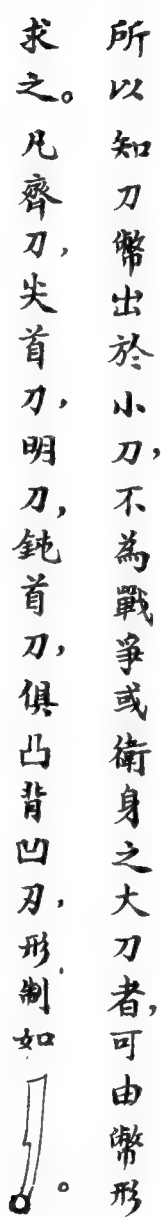 所以知刀幣出於小刀，不為戰爭或衛身之大刀者，可由幣形
求之。凡齊刀，尖首刀，明刀，鈍首刀，俱凸背凹刃，形制如。